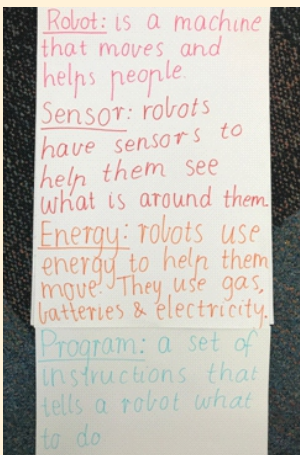 Robot: is a machine
that moves and
helps people.
Sensor: robots
have sensors to
help them see
what is around them.
Energy: robots use
energy to help them
move. They use gas,
batteries & electricity.
Program: a set of
instructions that
tells a robot what
to do